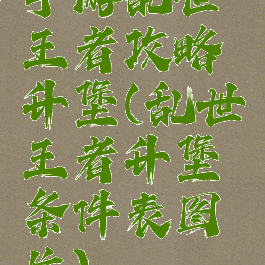 乱世
王者攻略
升堡(乱世
王者升堡
条件表图